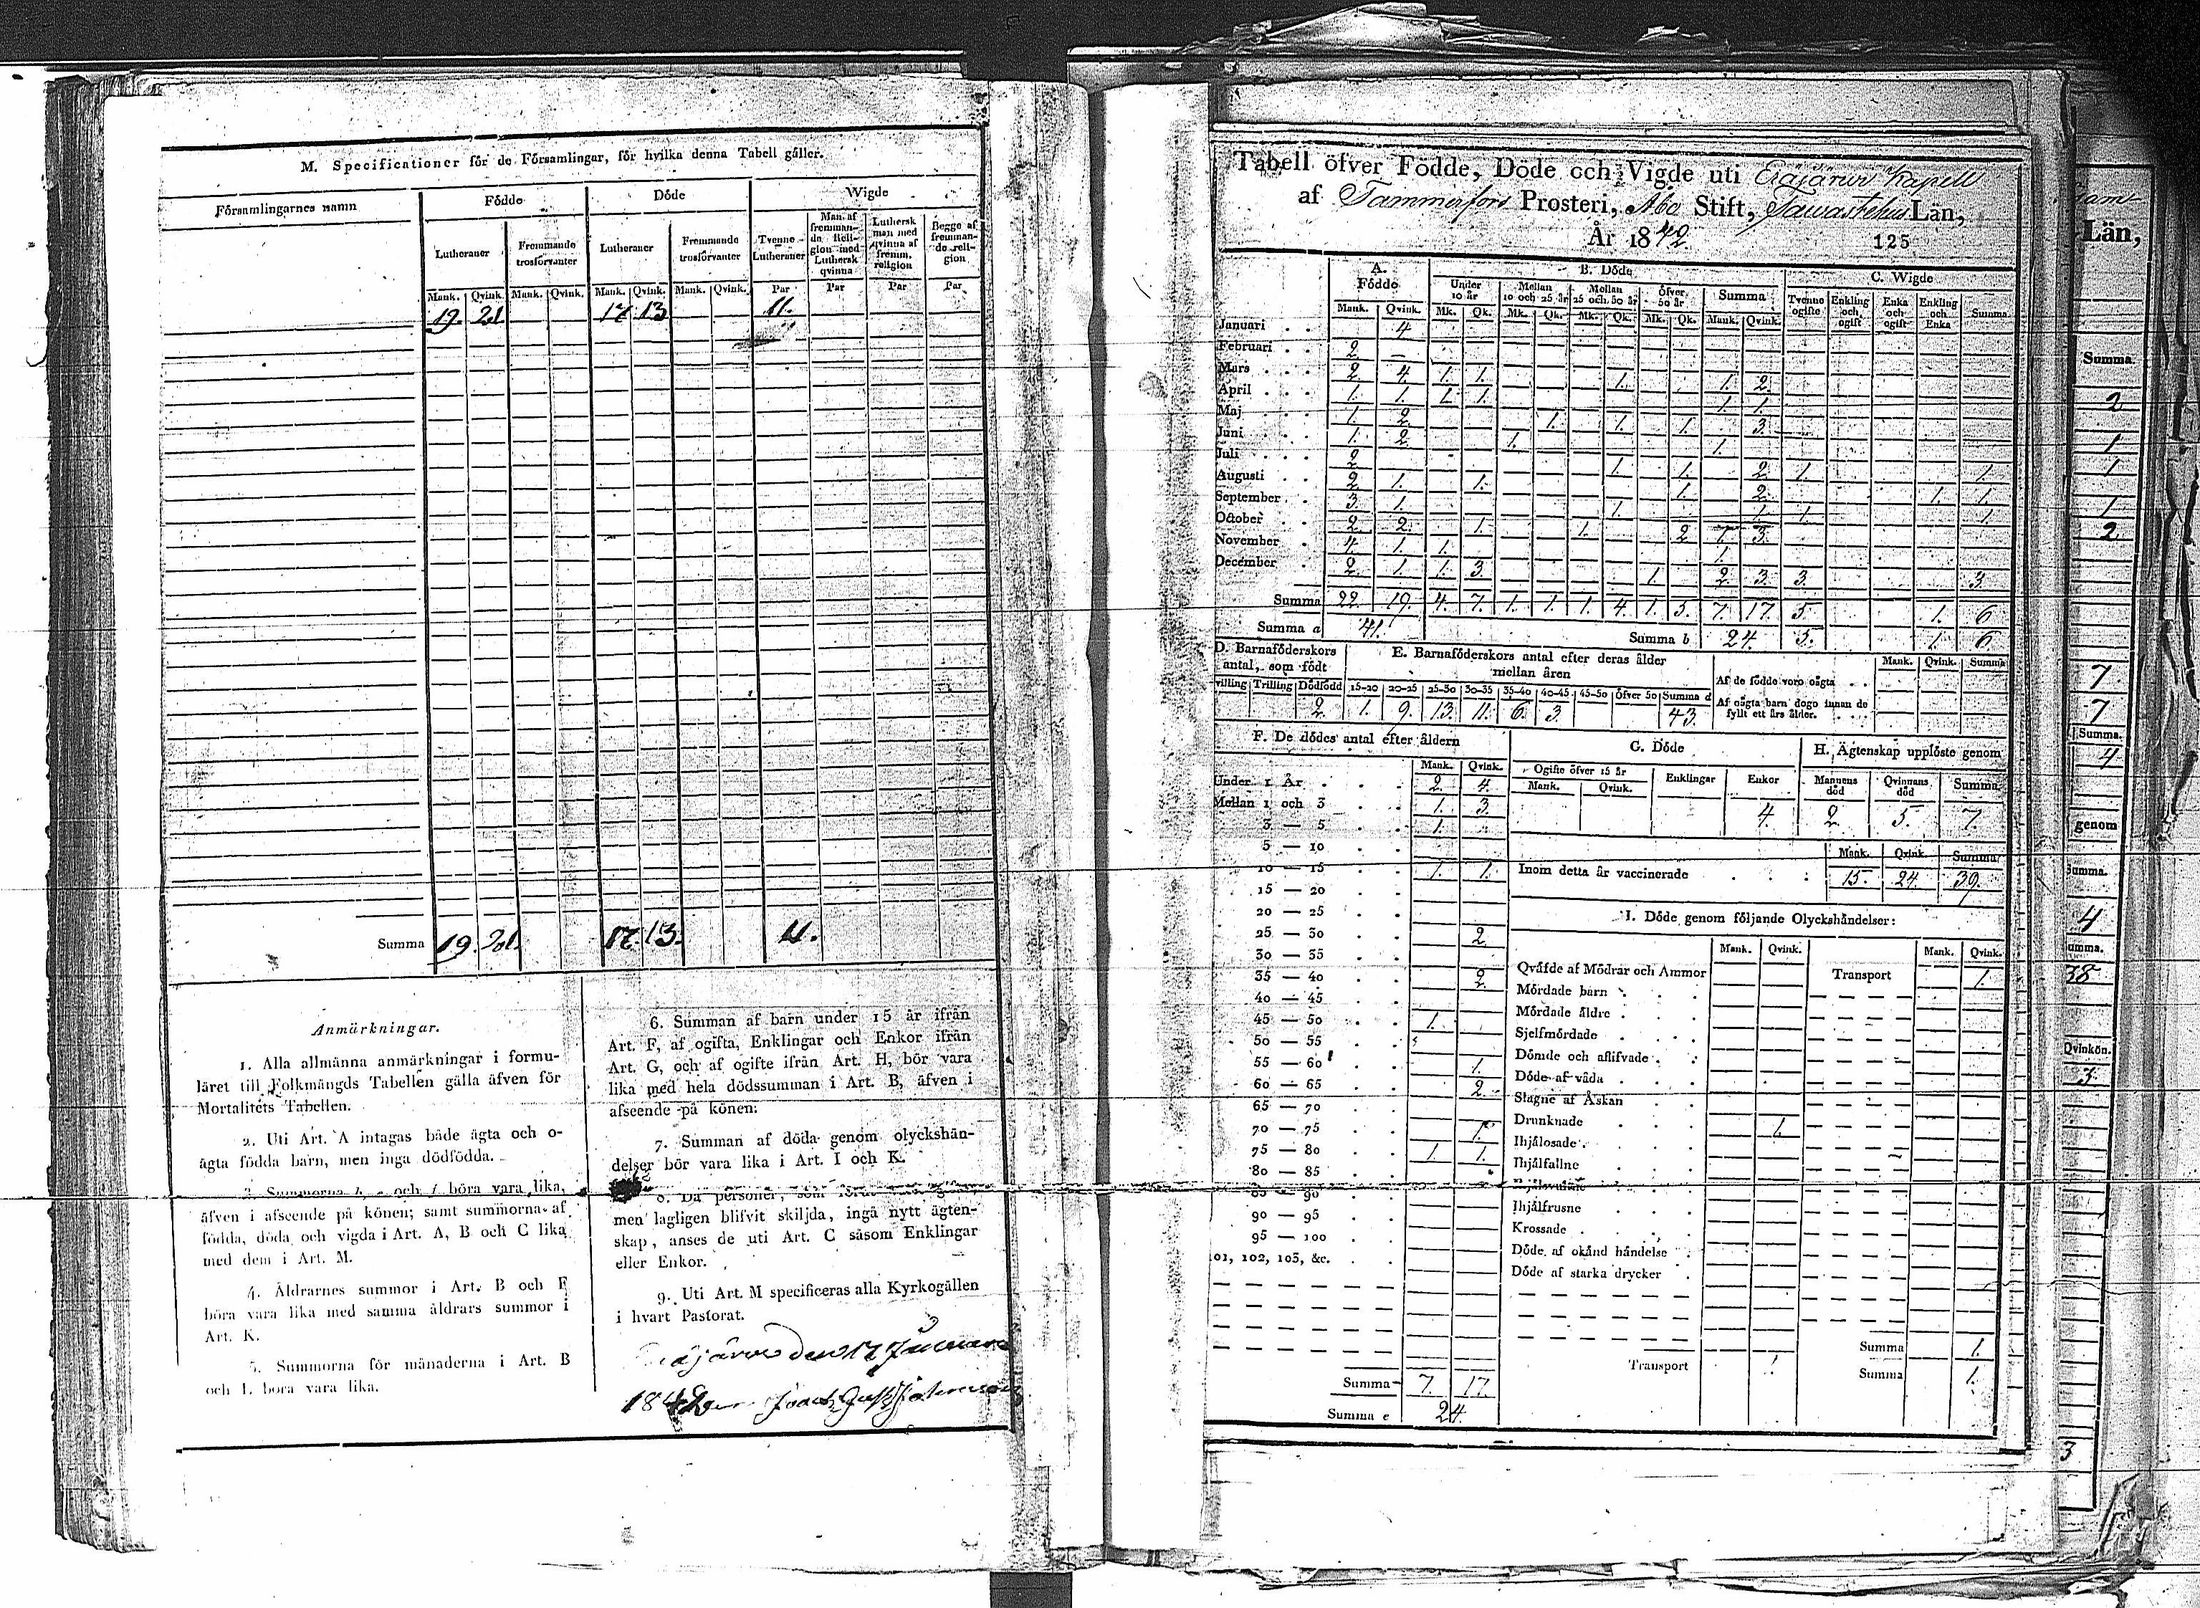 M. Specificationer för de Församlingar, för hvilka denna Tabell gäller.
Församlingarnes namn
Födde
Döde
Wigde
Lutheraner
Fremmande trosförvanter
Lutheraner
Fremmande trosförvanter
Tvenne Lutheraner
Man af fremmande Religion med Luthersk qvinna
Luthersk man med qvinna af fremm. religion
Begge af fremmande religion
Mank. Qvink. Mank. Qvink. Mank. Qvink. Mank. Qvink. Par Par Par Par
19. 21. 17 13 11.
Summa 19. 21. 17. 13. 11.
Anmärkningar.
1. Alla allmänna anmärkningar i formu-
läret till Folkmängds Tabellen gälla äfven för
Mortalitets Tabellen.
2. Uti Art. A intagas både ägta och o-
ägta födda barn, men inga dödfödda.
3. Summorna b, e och f böra vara lika,
äfven i afseende på könen; samt summorna af
födda, döda och vigda i Art. A, B och C lika
med dem i Art. M.
4. Åldrarnes summor i Art. B och F
böra vara lika med samma åldrars summor i
Art. K.
5. Summorna för månaderna i Art. B
och L böra vara lika.
6. Summan af barn under 15 år ifrån
Art. F, af ogifta, Enklingar och Enkor ifrån
Art. G, och af ogifte ifrån Art. H, bör vara
lika med hela dödssumman i Art. B, äfven i
afseende på könen.
7. Summan af döda genom olyckshän-
delser bör vara lika i Art. I och K.
8. Då personer, som
men lagligen blifvit skiljda, ingå nytt ägten-
skap, anses de uti Art. C såsom Enklingar
eller Enkor.
9. Uti Art. M specificeras alla Kyrkogällen
i hvart Pastorat.
den 17 Januari
Tabell öfver Födde, Döde och Vigde uti Eräjärvi Kapell
af Tammerfors Prosteri, Åbo Stift, Tawastehus Län,
År 1842
125
A. Födde
B. Döde
C. Wigde
Under 10 år
Mellan 10 och 25 år
Mellan 25 och 50 år
Öfver 50 år
Summa
Tvenne ogifte
Enkling och ogift
Enka och ogift
Enkling och Enka
Summa
Mank. Qvink. Mk. Qk. Mk. Qk. Mk. Qk. Mk. Qk. Mank. Qvink.
Januari 4
Februari 2
Mars 2 4. 1. 1. 1. 1. 2.
April 1. 1. 1. 1. 1. 1.
Maj 1. 2 1. 1. 1. 3.
Juni 1. 2 1. 1.
Juli 2 1. 1. 2 1. 1.
Augusti 2 1. 1. 1. 2. 1. 1.
September 3 1. 1. 1 1. 1.
October 2 2. 1. 1. 2 1. 3.
November 4. 1. 1. 1.
December 2. 1. 1. 3. 1. 2. 3. 3. 3.
Summa 22. 19. 4. 7. 1. 1. 1. 4. 1. 5. 7. 17. 5. 1. 6
Summa a 41. Summa b 24. 5. 1. 6
D. Barnaföderskors antal, som födt
E. Barnaföderskors antal efter deras ålder mellan åren
Mank. Qvink. Summa
Af de födde voro oägta
Af oägta barn dogo innan de fyllt ett års ålder.
villing Trilling Dödfödd 15-20 20-25 25-30 30-35 35-40 40-45 45-50 Öfver 50 Summa d
2. 1. 9. 13. 11. 6. 3. 43.
F. De dödes antal efter åldern
Mank. Qvink.
Under 1 År 2. 4.
Mellan 1 och 3 1. 3.
3 — 5 1.
5 — 10
10 — 15 1. 1.
15 — 20
20 — 25
25 — 30 2
30 — 35
35 — 40 2.
40 — 45
45 — 50 1.
50 — 55
55 — 60 1.
60 — 65 2.
65 — 70
70 — 75 1.
75 — 80 1 1.
80 — 85
85 — 90
90 — 95
95 — 100
101, 102, 103, &c.
Summa 7. 17.
Summa e 24.
G. Döde
Ogifte öfver 15 år
Enklingar
Enkor
Mank. Qvink.
4.
H. Ägtenskap upplöste genom
Mannens död
Qvinnans död
Summa
2. 5. 7.
Mank. Qvink. Summa
Inom detta år vaccinerade 15. 24. 39.
I. Döde genom följande Olyckshändelser:
Mank. Qvink. Mank. Qvink.
Qväfde af Mödrar och Ammor Transport 1.
Mördade barn
Mördade äldre
Sjelfmördade
Dömde och aflifvade
Döde af våda
Slagne af Åskan
Drunknade 1.
Ihjälosade
Ihjälfallne
Ihjälfrusne
Krossade
Döde af okänd händelse
Döde af starka drycker
Summa 1.
Transport 1 Summa 1.
Län,
Summa.
2
1
1
1
2
7
7
Summa.
4
genom
Summa.
4
umma.
38
Qvinkön.
3
3